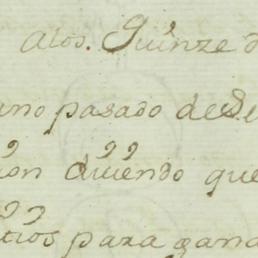 alos. Quinze d
uno pasado dese
ion diziendo que
tios para gana